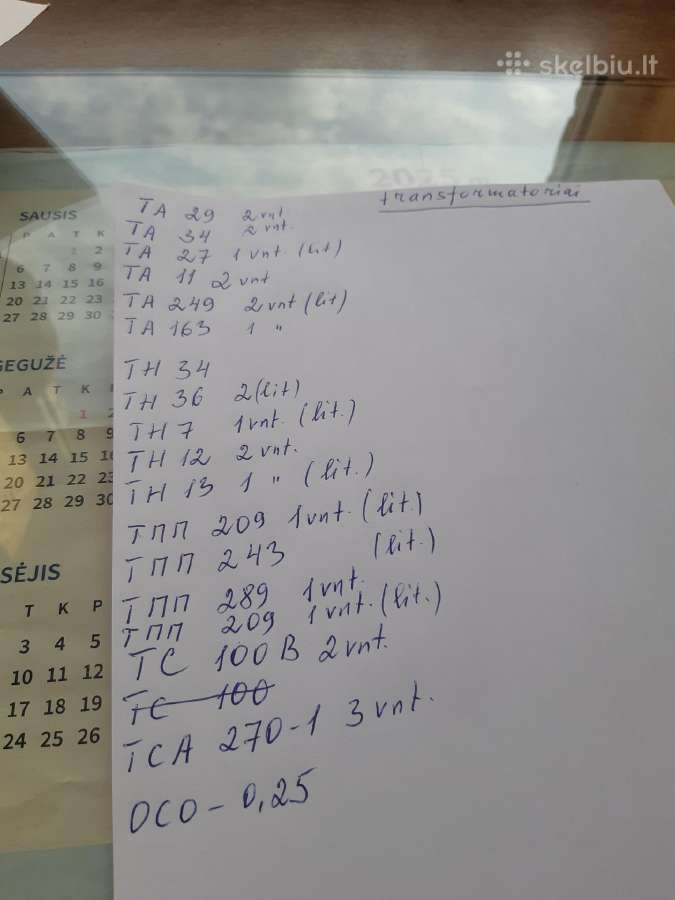 skelbiu.lt
2025
transformatoriai
ТА 29 2 vnt
ТА 34 2 vnt.
ТА 27 1 vnt. (lit)
ТА 11 2 vnt
ТА 249 2 vnt (lit)
ТА 163 1 "
ТН 34
ТН 36 2 (lit)
ТН 7 1 vnt. (lit.)
ТН 12 2 vnt.
ТН 13 1 " (lit.)
ТПП 209 1 vnt. (lit)
ТПП 243 (lit.)
ТПП 289 1 vnt.
ТПП 209 1 vnt. (lit.)
ТС 100 В 2 vnt.
ТС 100
ТСА 270-1 3 vnt.
ОСО - 0,25
SAUSIS
P A T K
1 2
6 7 8 9
13 14 15 16
20 21 22 23
27 28 29 30
GEGUŽĖ
P A T K
1 2
6 7 8 9
13 14 15 16
20 21 22 23
27 28 29 30
SĖJIS
T K P
3 4 5
10 11 12
17 18 19
24 25 26